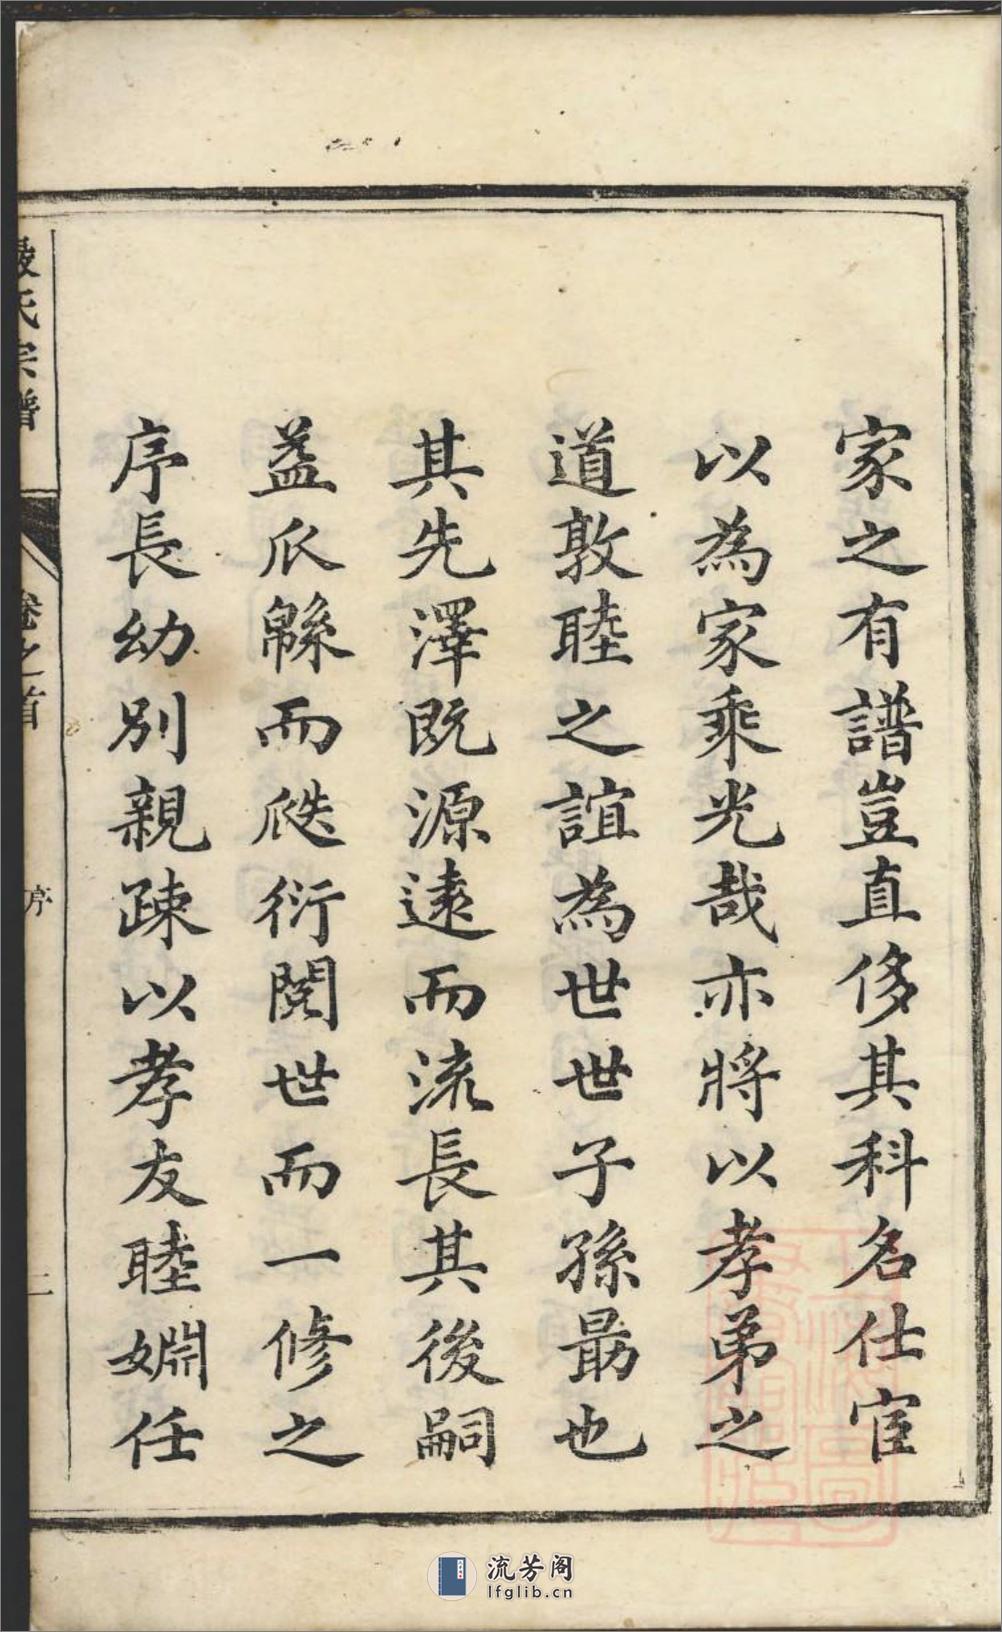 家之有譜豈直侈其科名仕宦
以為家乘光哉亦將以孝弟之
道敦睦之誼為世世子孫勗也
其先澤既源遠而流長其後嗣
益瓜緜而瓞衍閱世而一修之
序長幼別親疎以孝友睦婣任
氏宗譜
卷之首
序
二
流芳阁
lfglib.cn